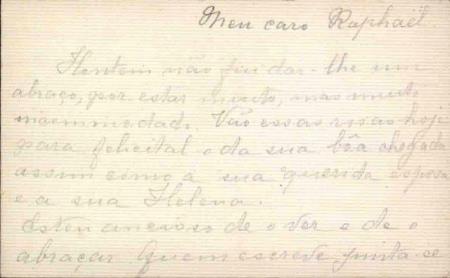 Meu caro Raphaël.
Hontem não fui dar-lhe um
abraço, por estar muito, mas muito
incommodado. Vão essas rosas hoje
para felicital-o da sua bôa chegada
assim como a sua querida esposa
e a sua Helena.
Estou ancioso de o ver e de o
abraçar. Quem escreve junta-se